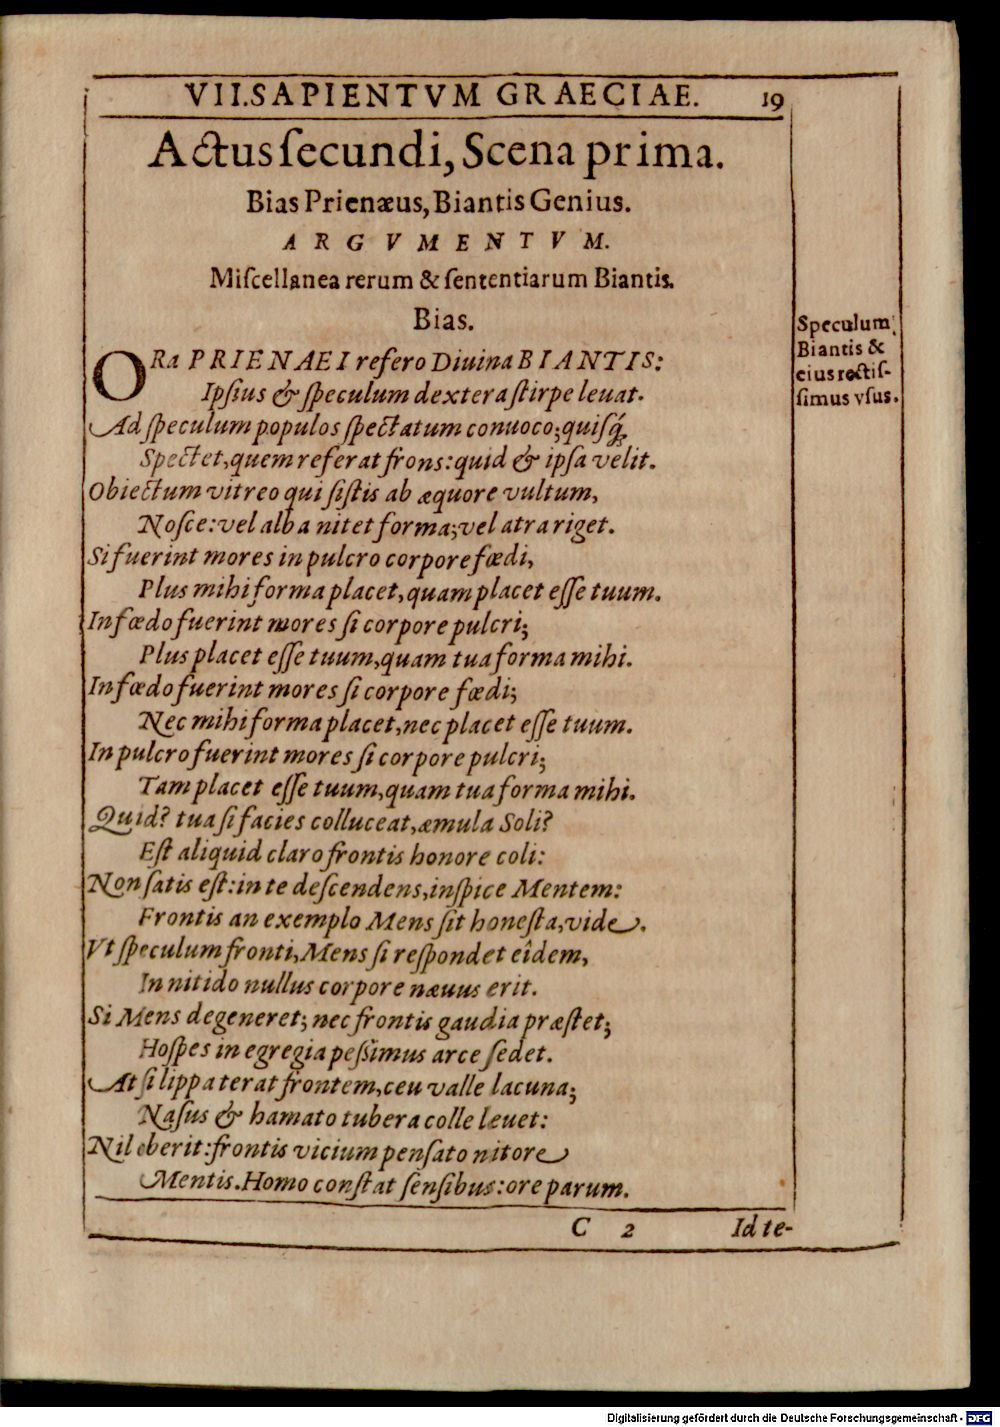 VII.SAPIENTVM GRAECIAE. 19
Actus ſecundi, Scena prima.
Bias Prienæus, Biantis Genius.
ARGVMENTVM.
Miſcellanea rerum & ſententiarum Biantis.
Bias.
ORa PRIENAEI refero Diuina BIANTIS:
Ipſius & ſpeculum dextera ſtirpe leuat.
Ad ſpeculum populos ſpectatum conuoco; quiſq́;
Spectet, quem referat frons: quid & ipſa velit.
Obiectum vitreo qui ſiſtis ab æquore vultum,
Noſce: vel alba nitet forma; vel atra riget.
Si fuerint mores in pulcro corpore fœdi,
Plus mihi forma placet, quam placet eſſe tuum.
In fœdo fuerint mores ſi corpore pulcri;
Plus placet eſſe tuum, quam tua forma mihi.
In fœdo fuerint mores ſi corpore fœdi;
Nec mihi forma placet, nec placet eſſe tuum.
In pulcro fuerint mores ſi corpore pulcri;
Tam placet eſſe tuum, quam tua forma mihi.
Quid? tua ſi facies colluceat, æmula Soli?
Eſt aliquid claro frontis honore coli:
Non ſatis eſt: in te deſcendens, inſpice Mentem:
Frontis an exemplo Mens ſit honeſta, vide.
Vt ſpeculum fronti, Mens ſi reſpondet eîdem,
In nitido nullus corpore næuus erit.
Si Mens degeneret; nec frontis gaudia præſtet;
Hoſpes in egregia peſſimus arce ſedet.
At ſi lippa terat frontem, ceu valle lacuna;
Naſus & hamato tubera colle leuet:
Nil oberit: frontis vicium penſato nitore
Mentis. Homo conſtat ſenſibus: ore parum.
C 2 Id te-
Speculum
Biantis &
eius rectiſ-
ſimus vſus.
Digitalisierung gefördert durch die Deutsche Forschungsgemeinschaft - DFG